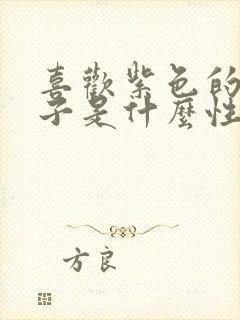 喜歡紫色的
子是什麼性
方良